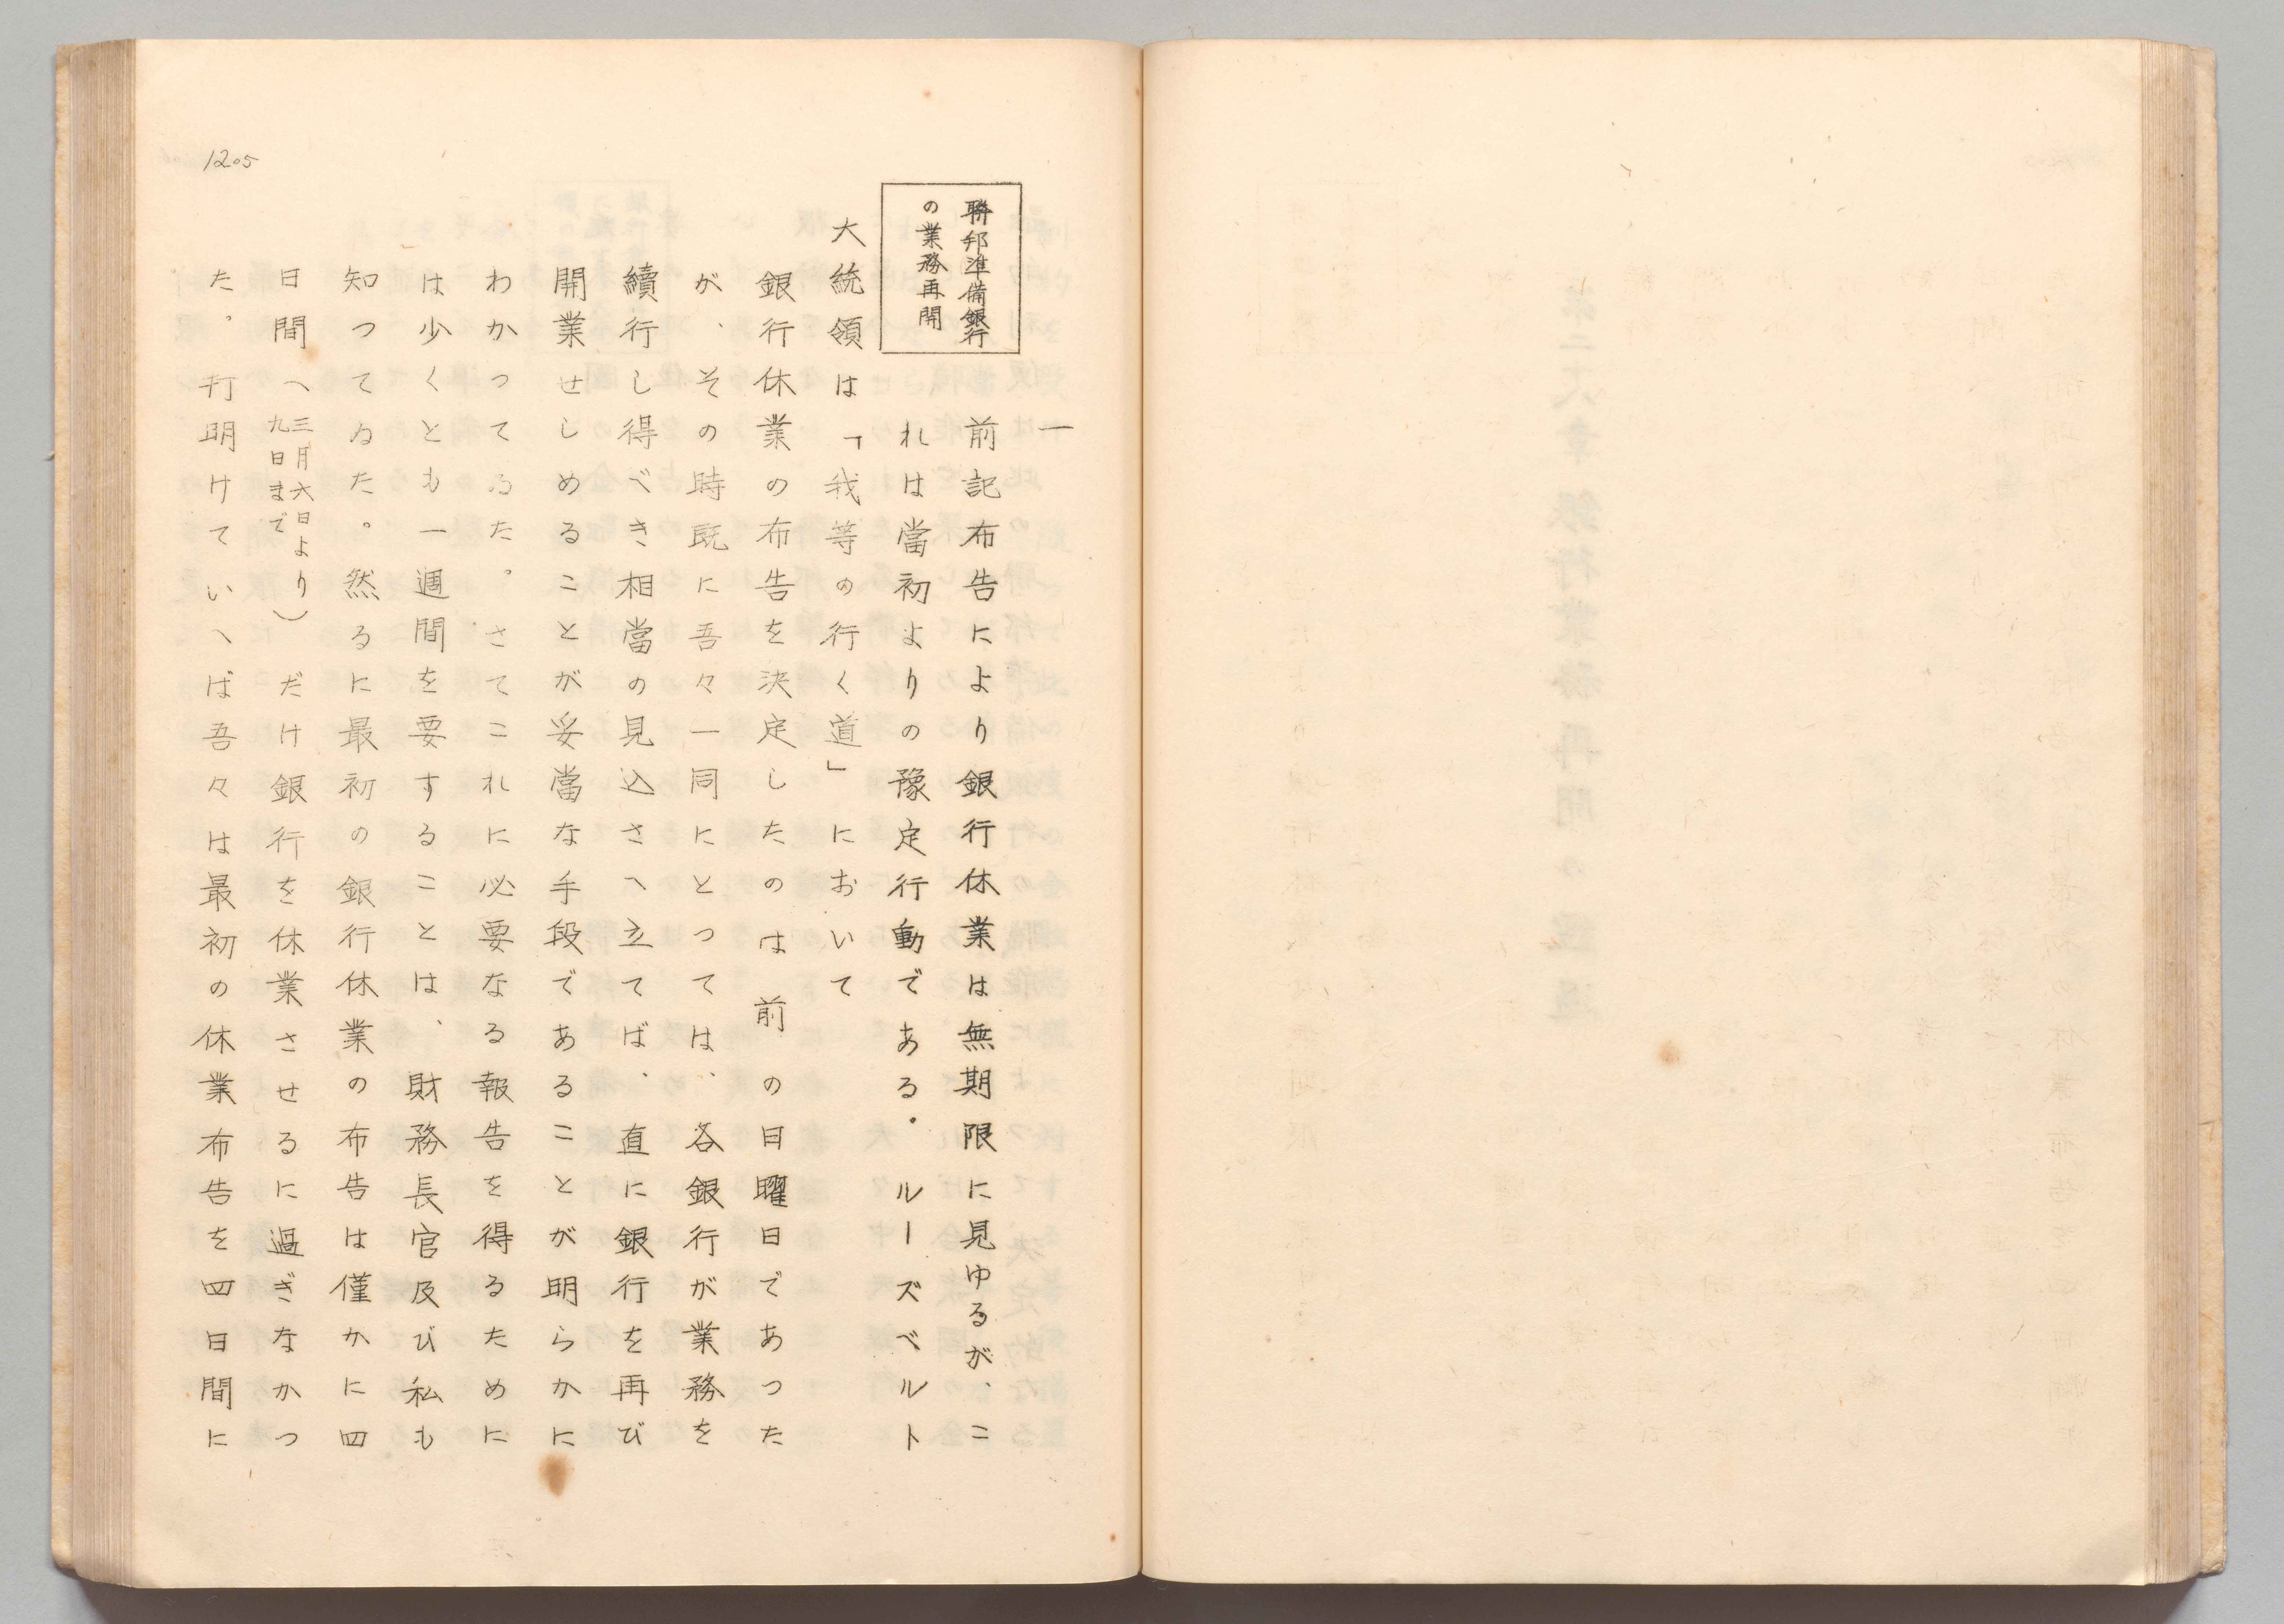 一
聯邦準備銀行
の業務再開
前記布告により銀行休業は無期限に見ゆるが、こ
れは當初よりの豫定行動である。ルーズベルト
大統領は「我等の行く道」において
銀行休業の布告を決定したのは前の日曜日であつた
が、その時既に吾々一同にとつては、各銀行が業務を
續行し得べき相當の見込さへ立てば、直に銀行を再び
開業せしめることが妥當な手段であることが明らかに
わかつてゐた。さてこれに必要なる報告を得るために
は少くとも一週間を要することは、財務長官及び私も
知つてゐた。然るに最初の銀行休業の布告は僅かに四
日間(三月六日より九日まで)だけ銀行を休業させるに過ぎなかつ
た。打明けていへば吾々は最初の休業布告を四日間に
1205